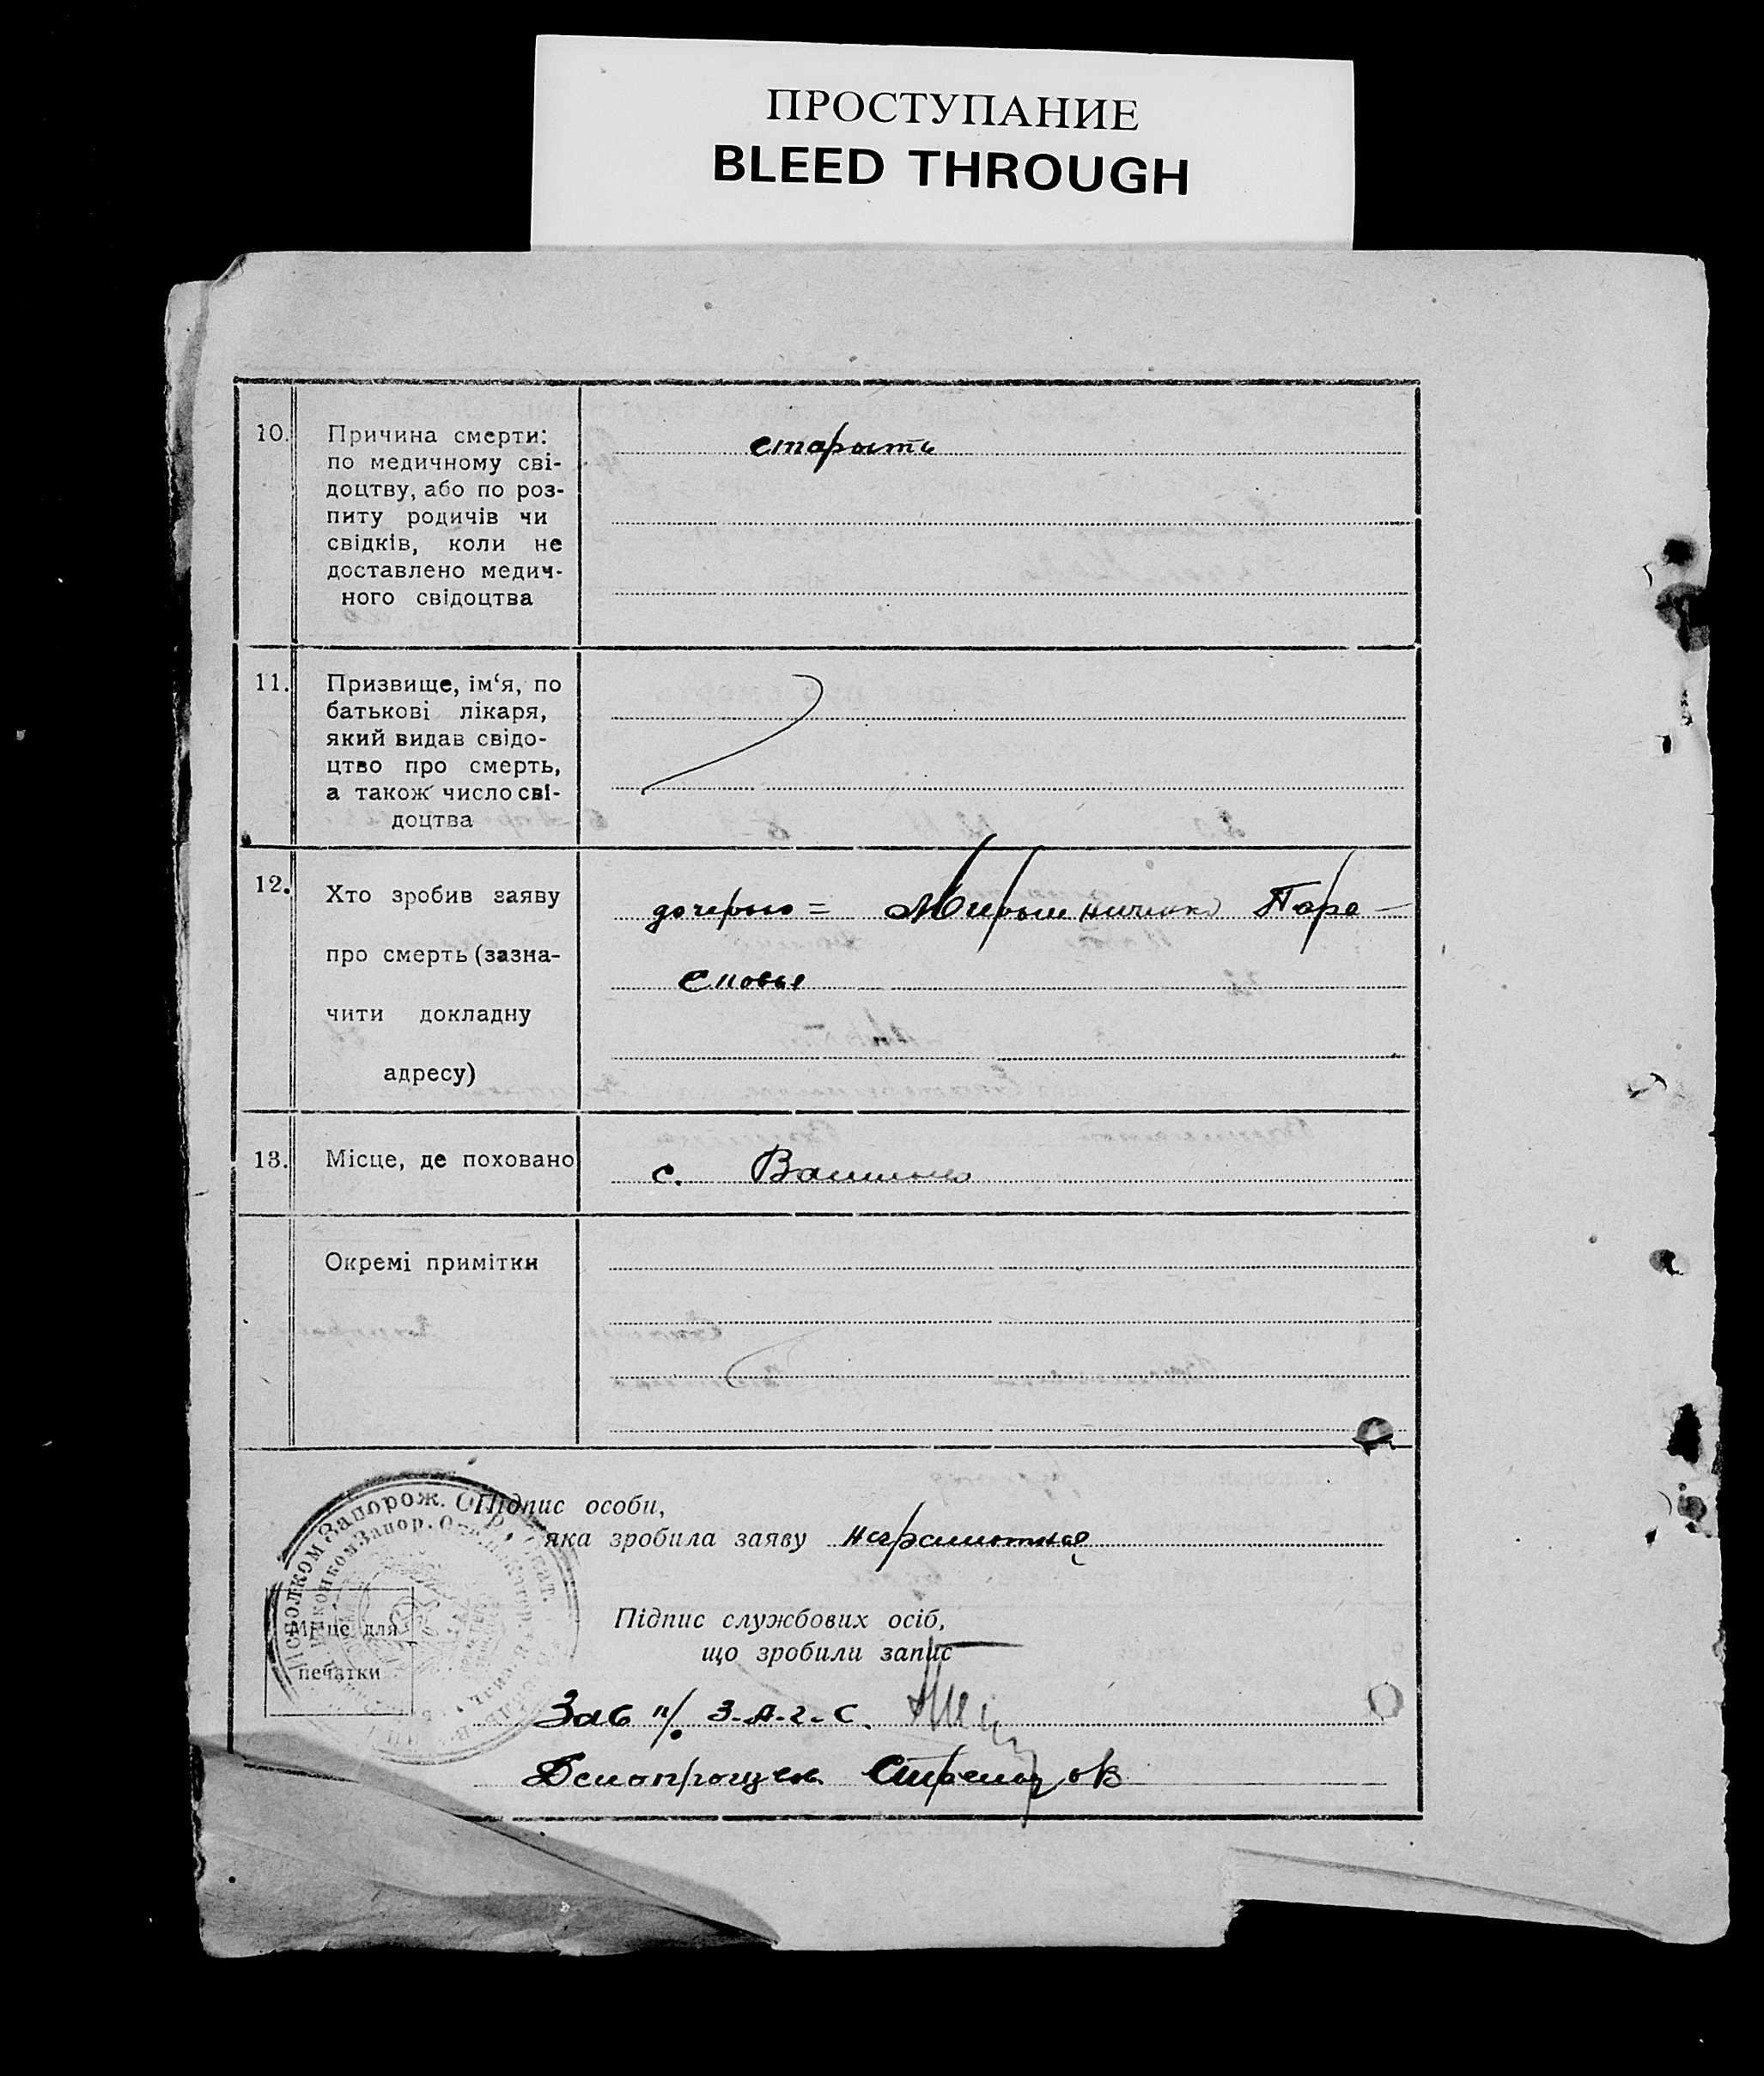 ПРОСТУПАНИЕ
BLEED THROUGH
10.
Причина смерти:
по медичному сві-
доцтву, або по роз-
питу родичів чи
свідків, коли не
доставлено медич-
ного свідоцтва
старость
11.
Призвище, ім‘я, по
батькові лікаря,
який видав свідо-
цтво про смерть,
а також число сві-
доцтва
12.
Хто зробив заяву
про смерть (зазна-
чити докладну
адресу)
дочерью = Мирошниченко Пара-
сковье
13.
Місце, де поховано
с.
Окремі примітки
Підпис особи,
яка зробила заяву неграмотная
Підпис службових осіб,
що зробили запис
Місце для
печатки
Запорож.
Зав З.А.Г.С.